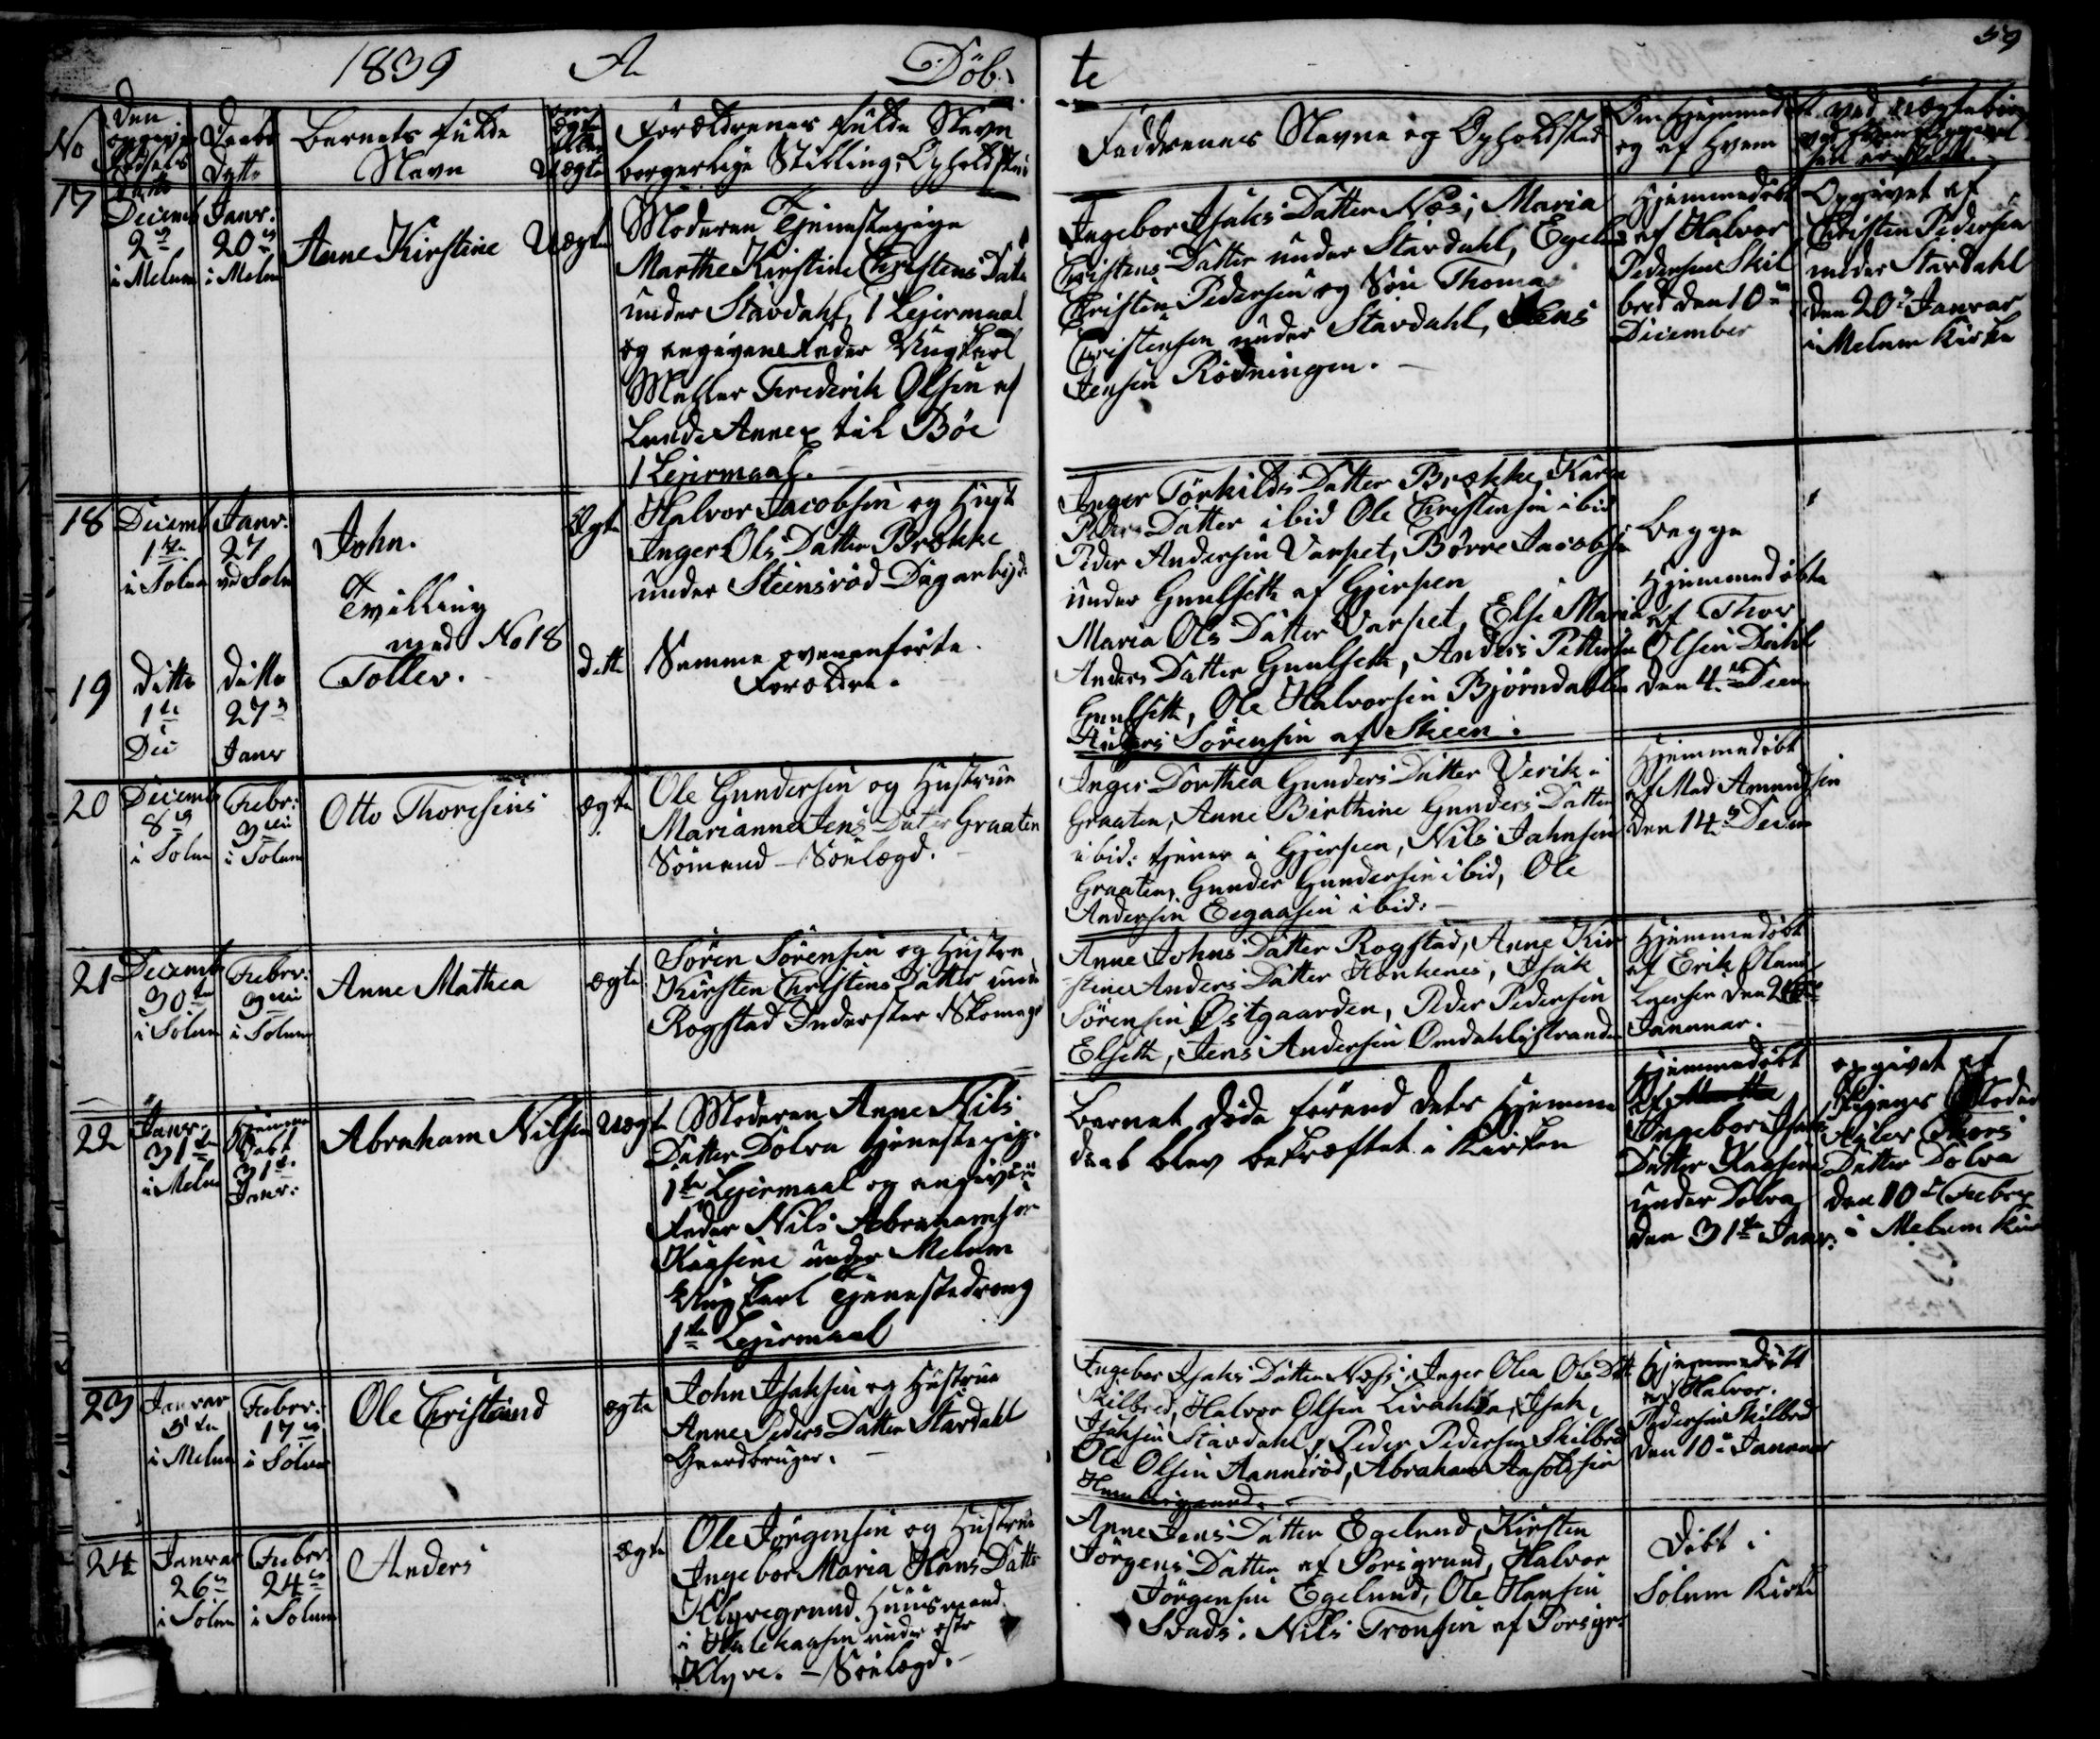 1839 A Döb-
te
59
No
Den
Fødsels
Datto
Daabs
Datto
Barnets fulde
Navn
Ægte
eller
Uægte
Forældrenes fulde Navn
borgerlige Stilling, Opholdsted
Faddrenes Navne og Opholdsted
Om Hjemmedöbt
og af Hvem
17
Decemb
2den
i Melum
Janr.
20de
i Melum
Anne Kirstine
Uægte
Moderen Tjenestepige
Marthe Kirstine Christens Datt
under Stavdahl, 1 Lejermaal
og angivene Fader Ungkarl
Møller Frederik Olsen af
Lunde Annex til Böe
1 Lejermaal.
Ingebor Isaks Datter Næs, Maria
Christens Datter under Stavdahl, Egelund
Christen Pedersen og Sön Thomas
Christensen under Stavdahl, Jens
Jensen Rödningen.
Hjemmedöbt
af Halvor
Pedersen Skil
bred den 10de
December
Opgivet af
Christen Pedersen
under Stavdahl
den 20de Januar
i Melum Kirke
18
Decemb
1ste
i Solum
Janr.
27
ved Solum
John.
Tvilling
med No 18
Ægte
Halvor Jacobsen og Hust
Inger Ols Datter Brække
under Steensröd Dagarbejd
Inger Törkilds Datter Brække, Karen
Peders Datter ibid Ole Christensen ibid
Peder Andersen Varpet, Börre Jacobsen
under Gunlseth af Gjerpen
Maria Ols Datter Varpet, Else Maria
Anders Datter Gunlseth, Anders Pettersen
Gunlseth, Ole Halvorsen Björndahlen
Anders Sörensen af Skeen.
Begge
Hjemmedöbte
af Thor
Olsen Dahl
den 4de Decem
19
ditto
1ste
Dec
ditto
27de
Janr
Tollev.
ditto
Samme ovenanförte
Forældre.
20
Decemb
8de
i Solum
Febr:
3die
i Solum
Otto Thoresius
ægte
Ole Gundersen og Hustrue
Marianna Jens Datter Graaten
Sömand - Söelægd.
Inger Dorthea Gunders Datter Verik i
Graaten, Anne Birthine Gunders Datter
ibid: tjener i Gjerpen, Nils Jahnsen
Graaten, Gunder Gundersen ibid, Ole
Andersen Eegaasen ibid.
Hjemmedöbt
af Mad Amundsen
den 14de Decem
21
Decemb
30te
i Solum
Febr:
3die
i Solum
Anne Mathea
ægte
Sören Sörensen og Hustrue
Kirsten Christens Datter under
Rogstad Inderster Skomager
Anne Johns Datter Rogstad, Anne Kir
stine Anders Datter Honkenes, Isak
Sörensen Östgaarden, Peder Pedersen
Elseth, Jens Andersen Omdahlsstranden
Hjemmedöbt
af Erik Olaus
Januuar.
22
Janr.
31te
i Melum
Hjemme
Döbt
31te
Janr:
Abraham Nilsen
Uægte
Moderen Anne Nils
Datter Dolva tjenestepige
1ste Lejermaal og angiven
Fader Nils Abrahamsen
Kaasene under Melum
Ungkarl Tjenestedreng
1ste Lejermaal
Barnet döde förend dets Hjemme
daab blev bekræftet i Kirken
Hjemmedöbt
af
Ingebor Isaks
Datter Kaasene
under Dolva
den 31te Janr:
opgivet af
Pigens Moder
Datter Dolva
den 10de Febr
i Melum Kirke
23
Januar
5te
i Melum
Febr:
17de
i Solum
Ole Christiand
ægte
John Isaksen og Hustrue
Anne Peders Datter Stavdahl
Gaardbruger.
Ingebor Isaks Datter Næss, Inger Olea Ols Datt
Skilbred, Halvor Olsen Livahlt, Isak
Isaksen Stavdahl, Peder Pedersen Skilbred
Ole Olsen Aanneröd, Abraham
Hjemmedöbt
af Halvor
Pedersen Skilbred
den 10de Januuar
24
Januar
26de
i Solum
Febr:
24de
i Solum
Anders
ægte
Ole Jörgensen og Hustrue
Ingebor Maria Hans Datt
Klyvegrund Huusmand
i under östre
Klyve. - Söelægd.
Anne Jens Datter Egelund, Kirsten
Jörgens Datter af Porsgrund, Halvor
Jörgensen Egelund, Ole Hansen
Nils Tronsen af Porsgr.
Döbt i
Solum Kirke